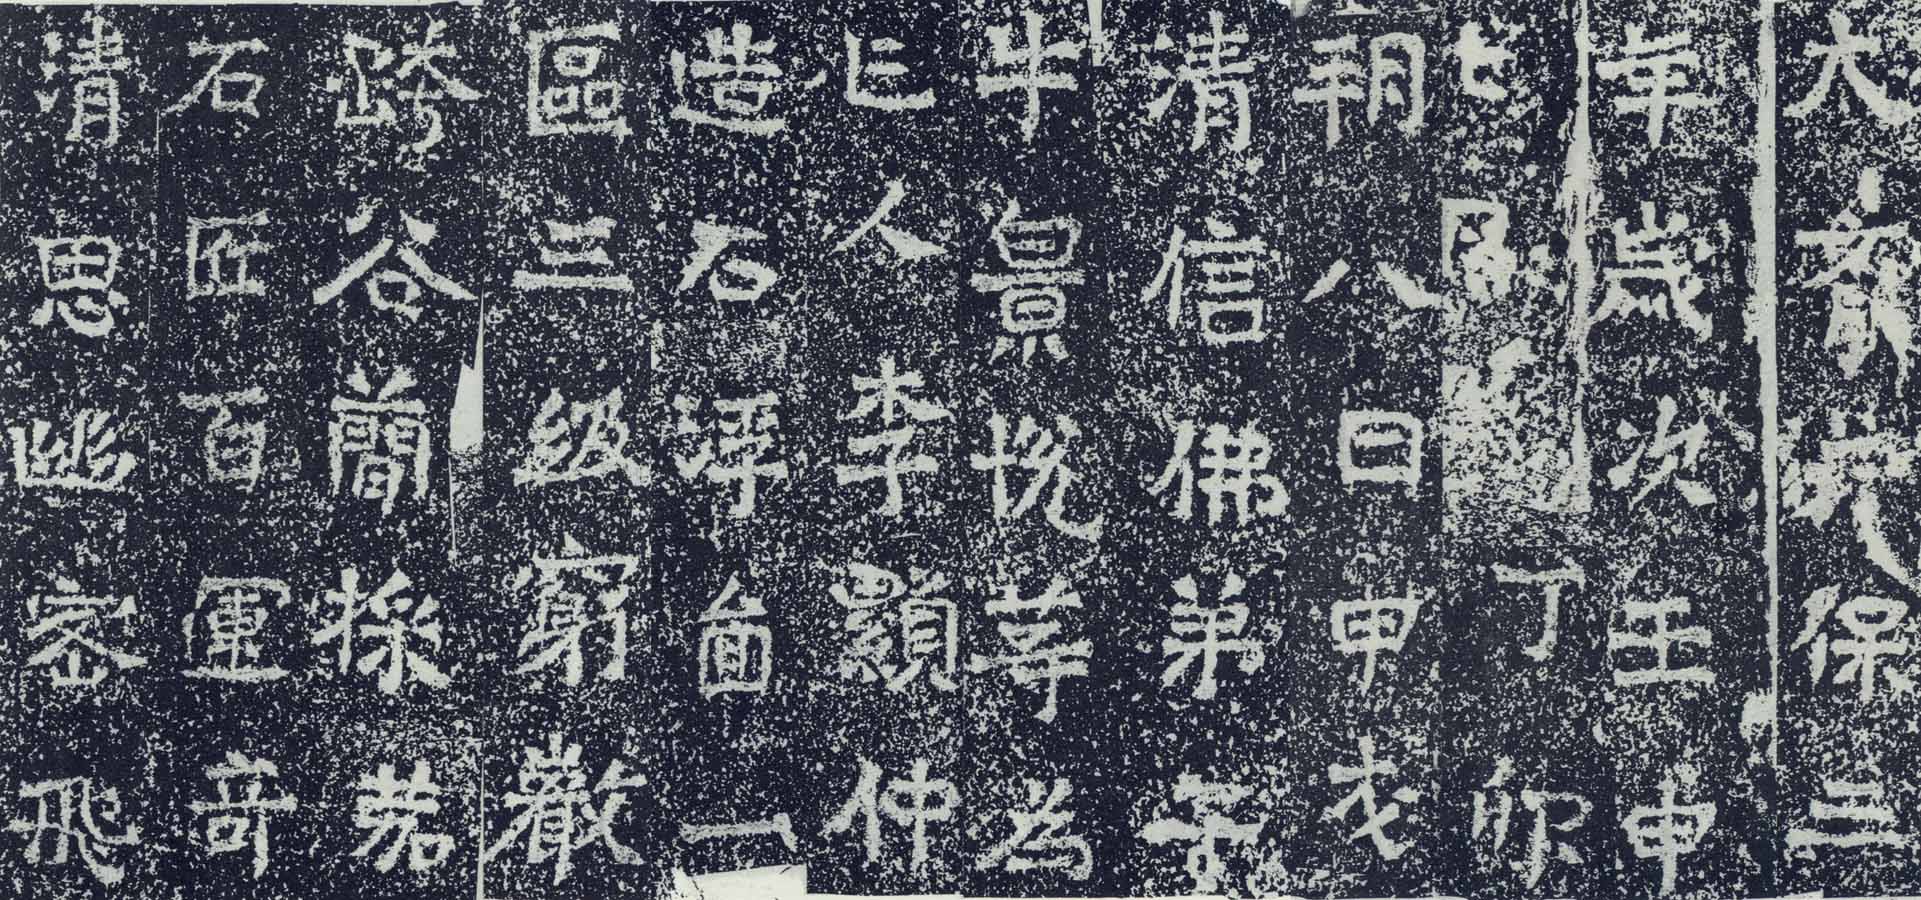 大齊天保三
年歲次壬申
七月丁卯
朔八日甲戌
清信佛弟子
牛景悅等為
亡人李顯仲
造石浮啚一
區三級窮巖
跨谷蕳採茗
石匠百運奇
清思幽密飛